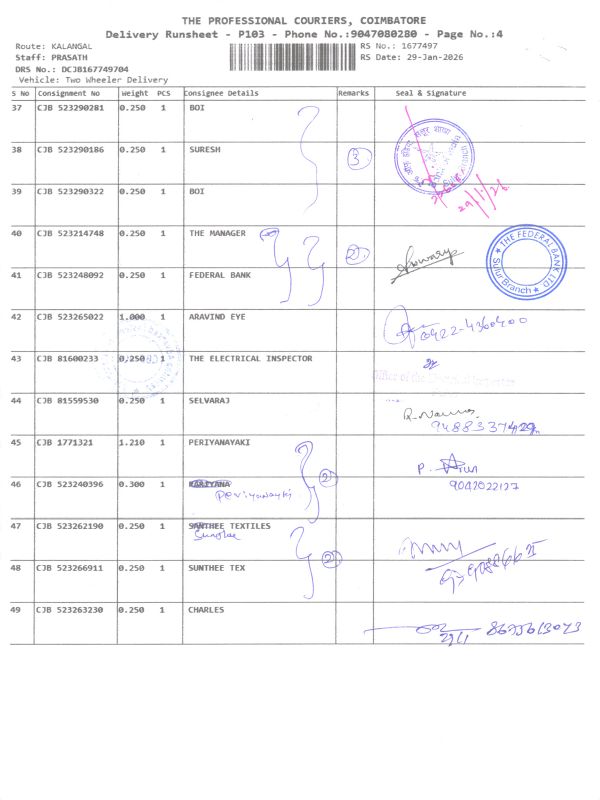 THE PROFESSIONAL COURIERS, COIMBATORE
Delivery Runsheet - P103 - Phone No.:9047080280 - Page No.:4
Route: KALANGAL RS No.: 1677497
Staff: PRASATH RS Date: 29-Jan-2026
DRS No.: DCJB167749704
Vehicle: Two Wheeler Delivery
S No Consignment No Weight PCS Consignee Details Remarks Seal & Signature
37 CJB 523290281 0.250 1 BOI
38 CJB 523290186 0.250 1 SURESH 3
29/1/26
39 CJB 523290322 0.250 1 BOI
40 CJB 523214748 0.250 1 THE MANAGER 2
THE FEDERAL BANK LTD
Sulur Branch
41 CJB 523248092 0.250 1 FEDERAL BANK
42 CJB 523265022 1.000 1 ARAVIND EYE 0422-4360400
43 CJB 81600233 0.250 1 THE ELECTRICAL INSPECTOR
44 CJB 81559530 0.250 1 SELVARAJ
45 CJB 1771321 1.210 1 PERIYANAYAKI
46 CJB 523240396 0.300 1 2
Periyanayki
47 CJB 523262190 0.250 1 SANTHEE TEXTILES 2
48 CJB 523266911 0.250 1 SUNTHEE TEX
49 CJB 523263230 0.250 1 CHARLES
29/1